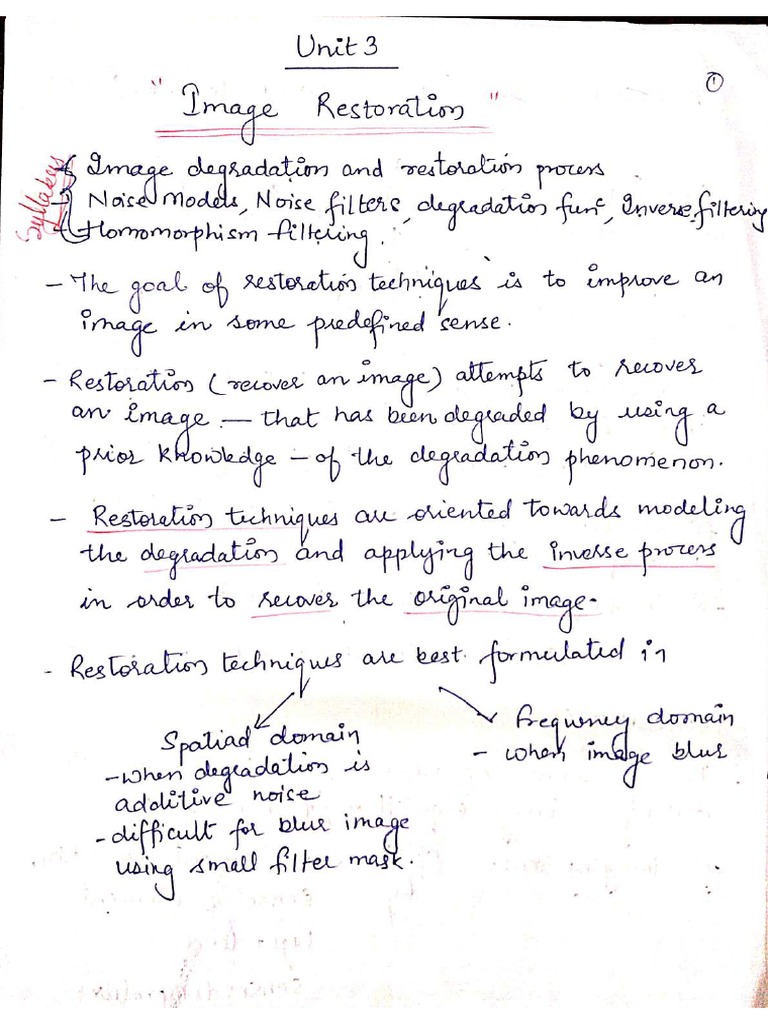 Unit 3
①
"Image Restoration"
Syllabus
Image degradation and restoration process
Noise Models, Noise filters, degradation funᶜ, Inverse filtering
Homomorphism filtering.
- The goal of restoration techniques is to improve an
image in some predefined sense.
- Restoration (recover an image) attempts to recover
an image — that has been degraded by using a
prior knowledge – of the degradation phenomenon.
- Restoration techniques are oriented towards modeling
the degradation and applying the inverse process
in order to recover the original image.
- Restoration techniques are best formulated in
Spatial domain
- when degradation is
additive noise
- difficult for blur image
using small filter mask.
frequency domain
- when image blur